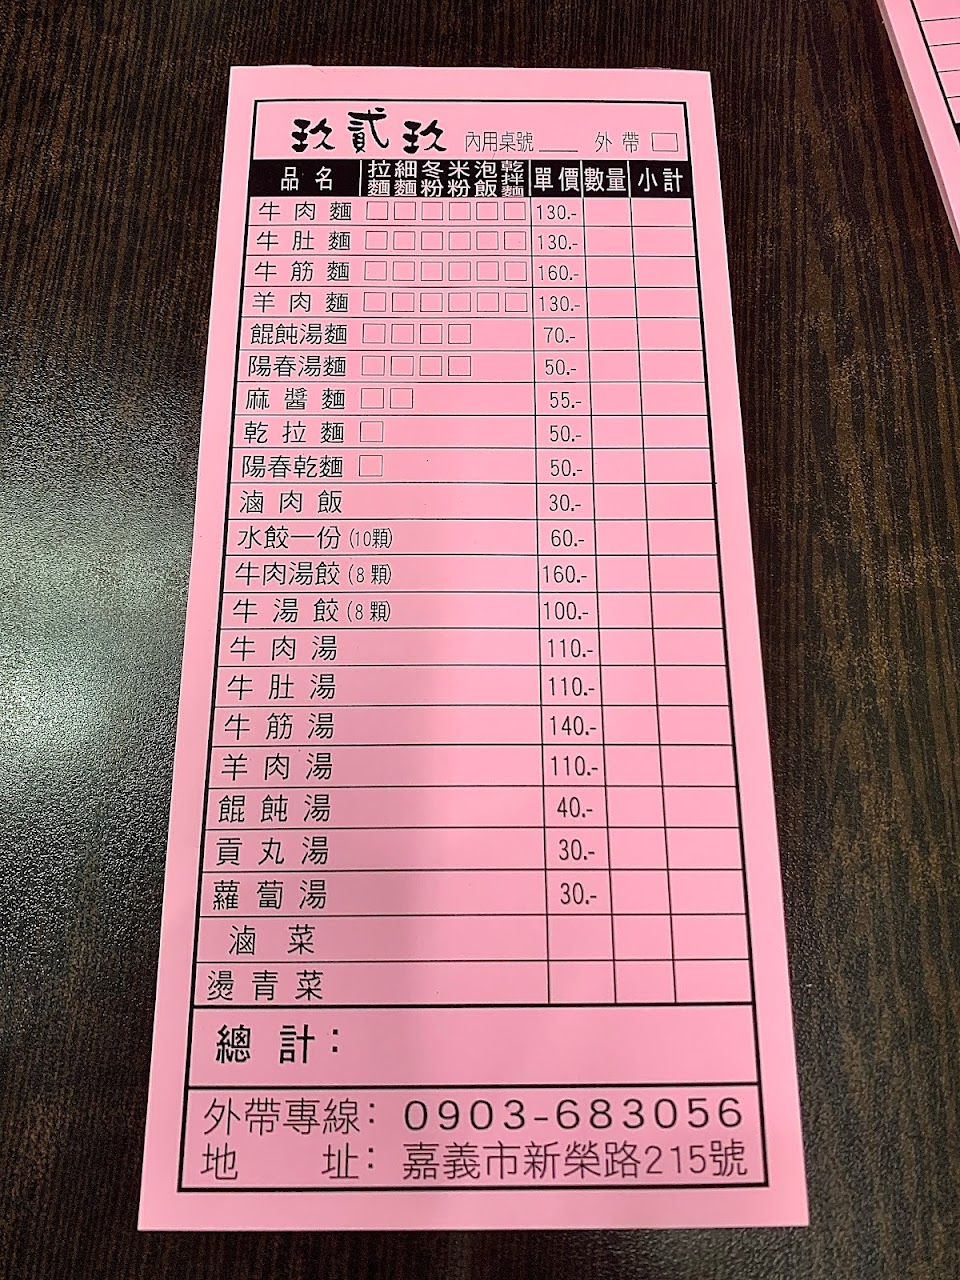 玖貳玖 內用桌號____ 外帶□
品名 拉麵 細麵 冬粉 米粉 泡飯 乾拌麵 單價 數量 小計
牛肉麵 □□□□□□ 130.-
牛肚麵 □□□□□□ 130.-
牛筋麵 □□□□□□ 160.-
羊肉麵 □□□□□□ 130.-
餛飩湯麵 □□□□ 70.-
陽春湯麵 □□□□ 50.-
麻醬麵 □□ 55.-
乾拉麵 □ 50.-
陽春乾麵 □ 50.-
滷肉飯 30.-
水餃一份(10顆) 60.-
牛肉湯餃(8顆) 160.-
牛湯餃(8顆) 100.-
牛肉湯 110.-
牛肚湯 110.-
牛筋湯 140.-
羊肉湯 110.-
餛飩湯 40.-
貢丸湯 30.-
蘿蔔湯 30.-
滷菜
燙青菜
總計：
外帶專線：0903-683056
地址：嘉義市新榮路215號